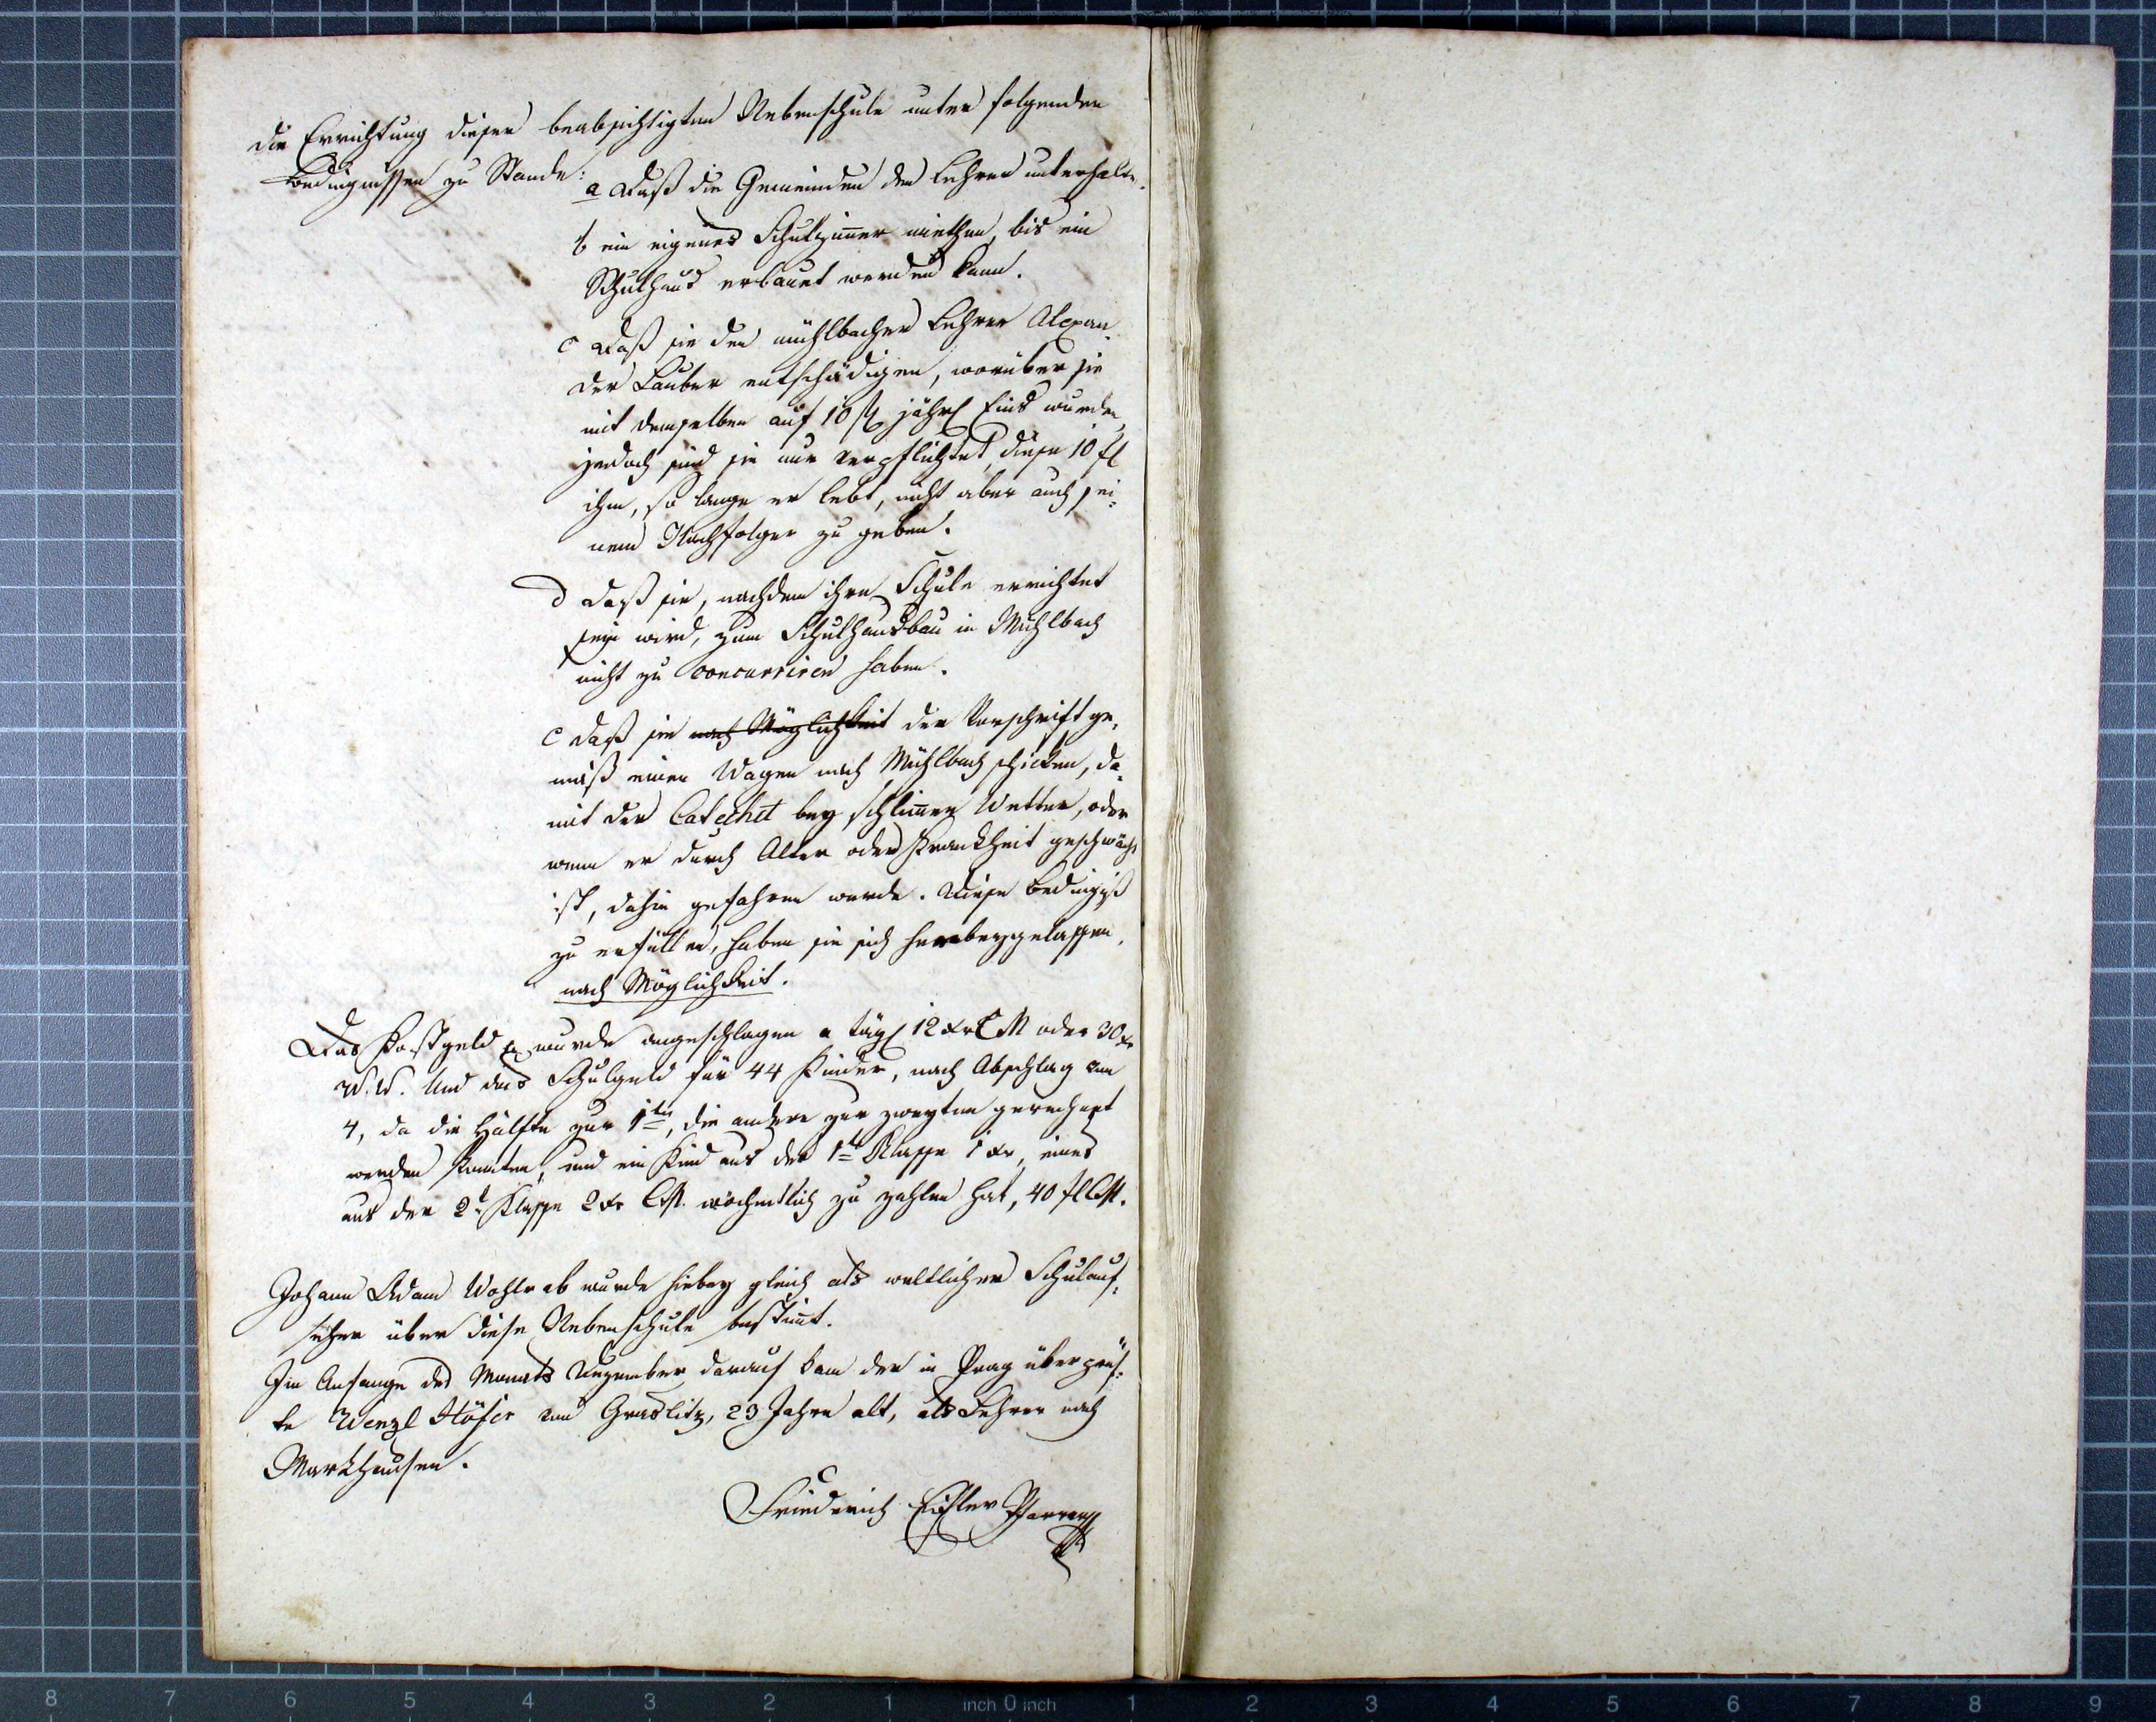 die Errichtung dieser beabsichtigten Nebenschule unter folgenden
Bedingnissen zu Stande:
a daß die Gemeinden den Lehrer unterhalte.
b ein eigenes Schulzim̅er miethen, bis ein
Schulhaus erbauet werden kann.
c daß sie den mühlbacher Lehrer Alexan-
der Lauber entschädigen, worüber sie
mit demselben auf 10 fl jährl Eins wurden,
jedoch sind sie nur verpflichtet, diese 10 fl
ihm, so lange er lebt, nicht aber auch sei-
nem Nachfolger zu geben.
d daß sie, nachdem ihre Schule errichtet
seyn wird, zum Schulhausbau in Mühlbach
nicht zu concurriren haben.
e daß sie nach Möglichkeit der Vorschrift ge-
mäß einen Wagen nach Mühlbach schicken, da-
mit der Catechet bey schlim̅en Wetter, oder
wenn er durch Alter oder Krankheit geschwächt
ist, dahin gefahren werde. Diese Bedingniß
zu erfüllen, haben sie sich herbeygelassen,
nach Möglichkeit.
Das Kostgeld wurde angeschlagen a tägl 12 xr CM oder 30 xr
W.W. Und das Schulgeld für 44 Kinder, nach Abschlag von
4, da die Hälfte zur 1ten, die andere zur zweyten gerechnet
werden konnten, und ein Kind aus der 1t Klasse 1 xr, eines
aus der 2t Klasse 2 xr CM. wöchentlich zu zahlen hat, 40 fl CM.
Johann Adam Wohlrab wurde hiebey gleich als weltlicher Schulauf-
seher über diese Nebenschule bestim̅t.
Im Anfange des Monats Dezember darauf kam der in Prag überprüf-
te Wenzl Höfer von Graslitz, 23 Jahre alt, als Lehrer nach
Markhausen.
Friederich Eißler Pfarrer
8 7 6 5 4 3 2 1 inch 0 inch 1 2 3 4 5 6 7 8 9